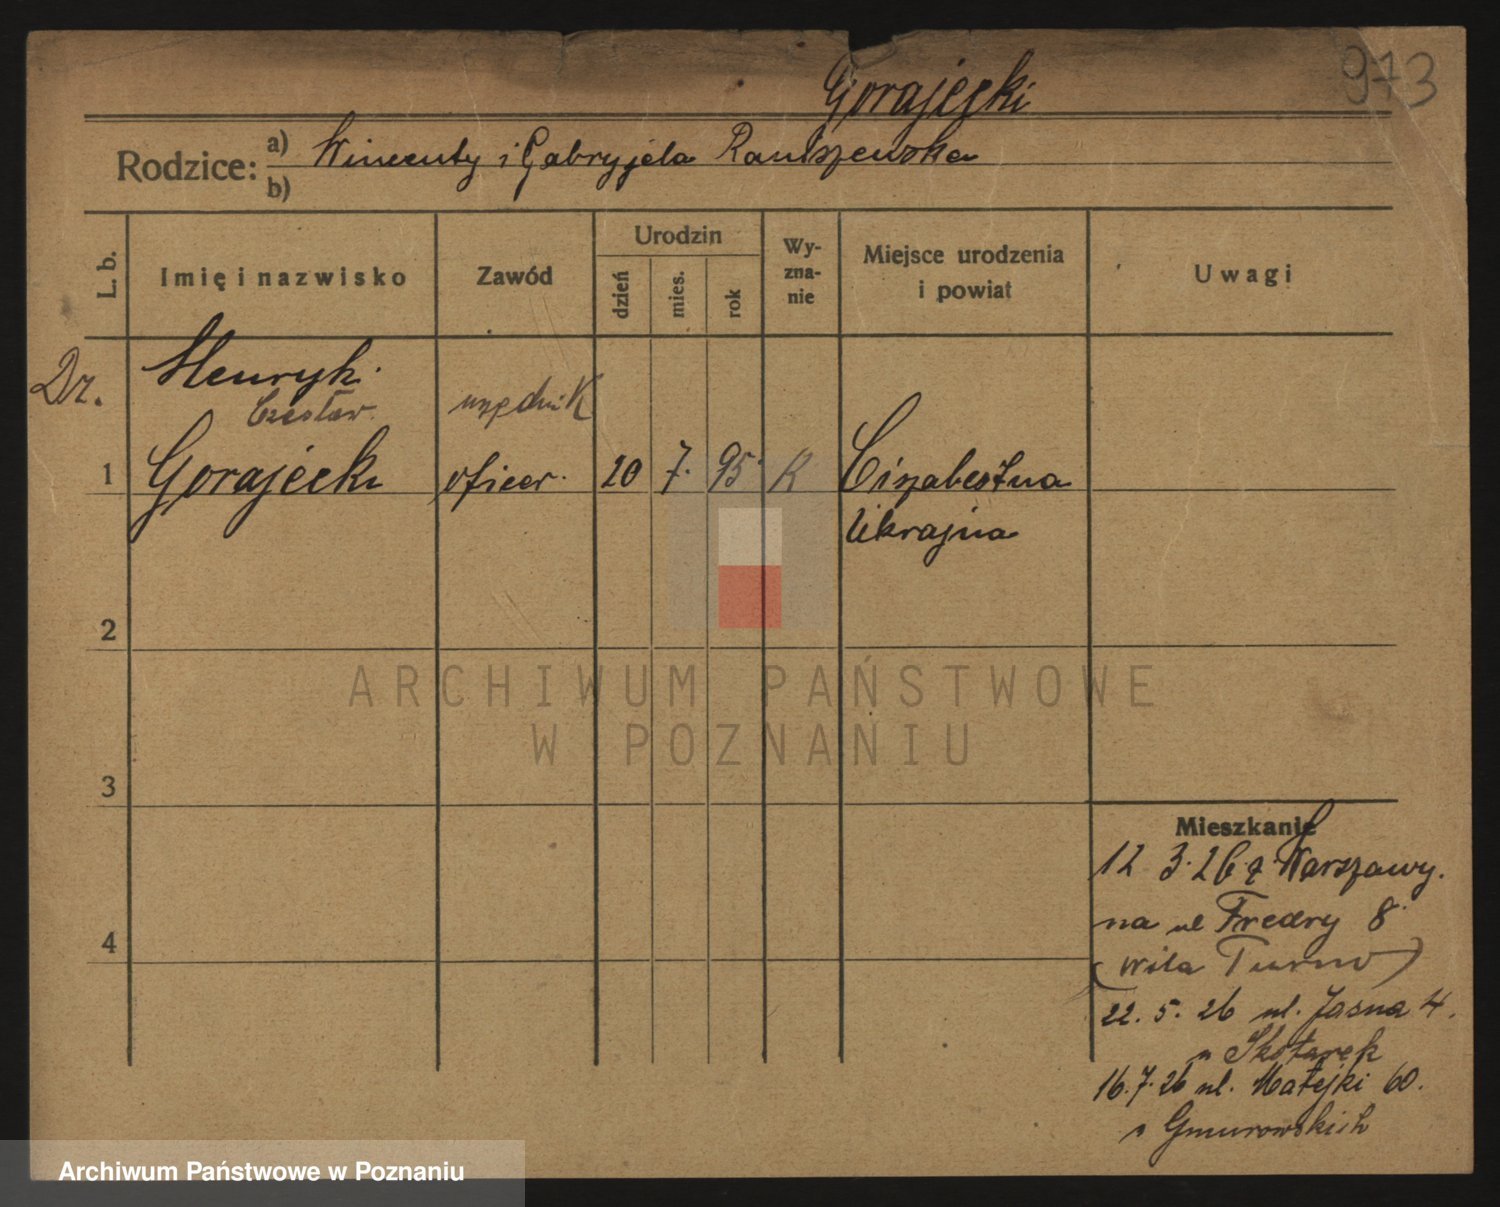 973
Gorajecki
Rodzice: a) Wincenty i Gabryjela
b)
L. b.
Imię i nazwisko
Zawód
Urodzin
dzień
mies.
rok
Wy-
zna-
nie
Miejsce urodzenia
i powiat
Uwagi
Dr.
Henryk
Czesław
urzędnik
1
Gorajecki
oficer
20
7.
95
K
Ukrajna
2
ARCHIWUM PAŃSTWOWE
W POZNANIU
3
Mieszkanie
12 3. 26 z Warszawy.
na ul Fredry 8
(willa Turno)
4
22. 5. 26 ul. Jasna 4.
u Skotarek
16. 7. 26 ul. Matejki 60.
u Gmurowskich
Archiwum Państwowe w Poznaniu